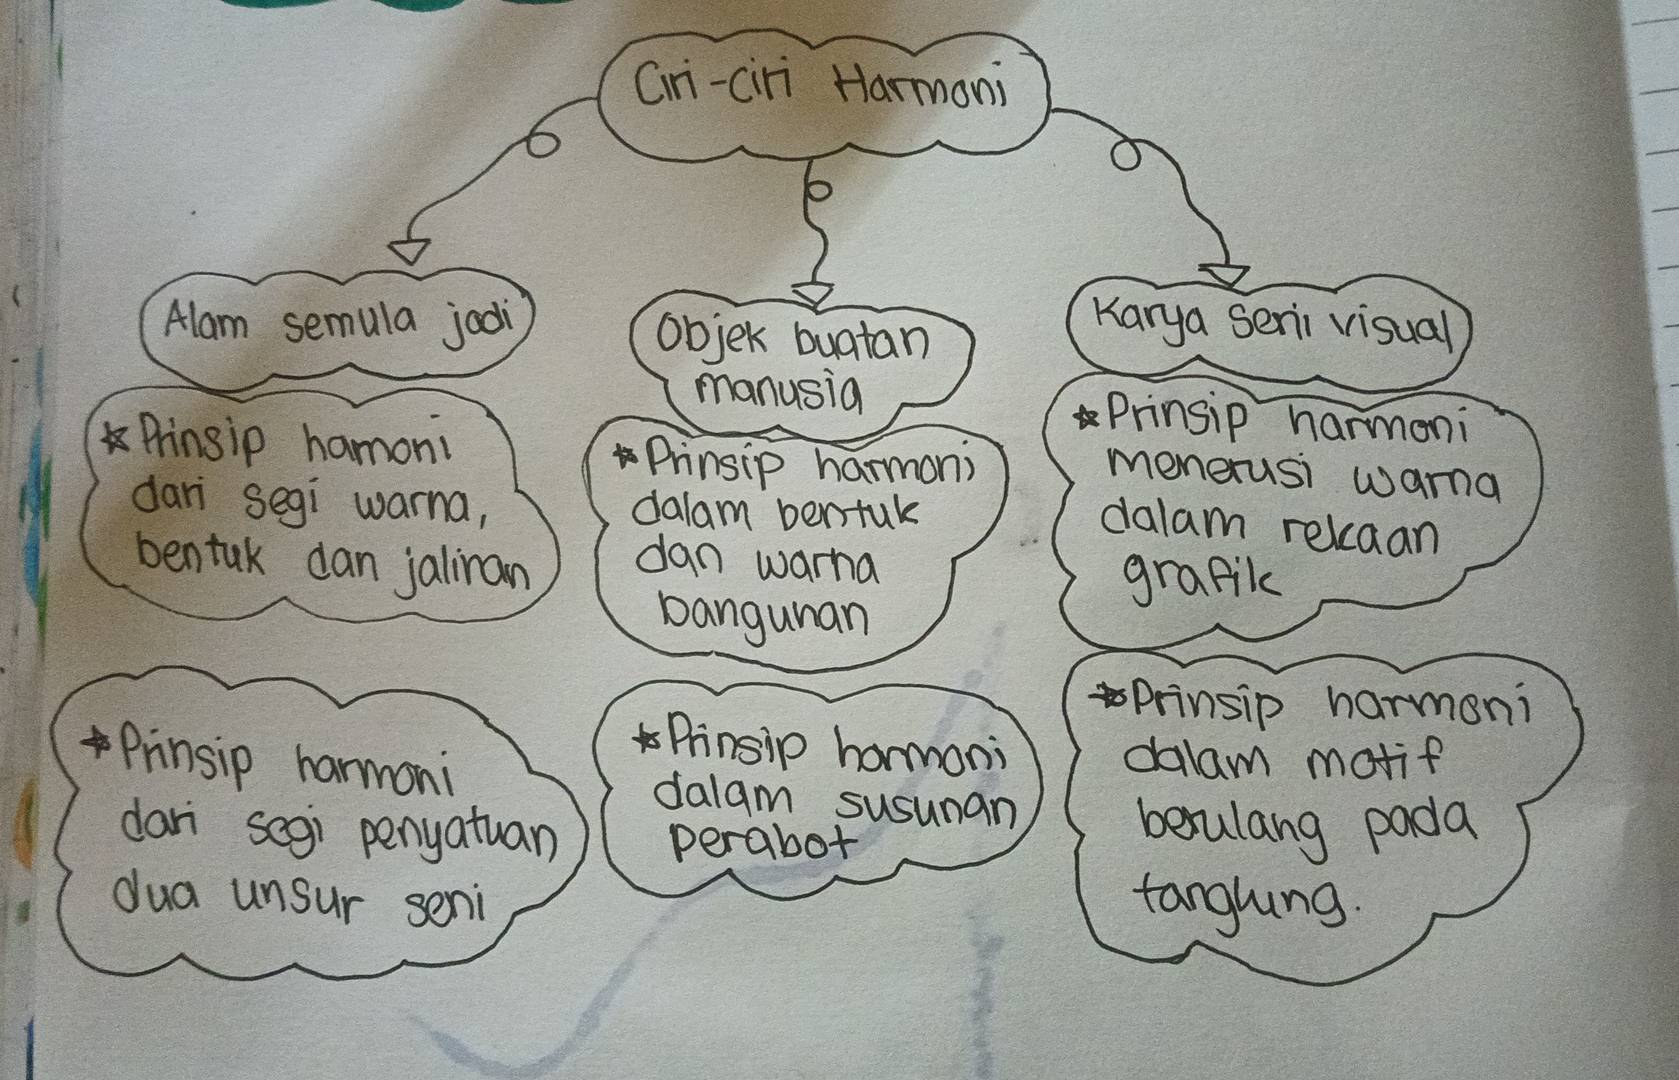 Ciri-ciri Harmoni
Alam semula jadi
* Prinsip hamoni
dari segi warna,
bentuk dan jalinan
* Prinsip harmoni
dari segi penyatuan
dua unsur seni
Objek buatan
manusia
* Prinsip harmoni
dalam bentuk
dan warna
bangunan
* Prinsip harmoni
dalam susunan
perabot
Karya seni visual
* Prinsip harmoni
menerusi warna
dalam rekaan
grafik
* Prinsip harmoni
dalam motif
berulang pada
tanglung.